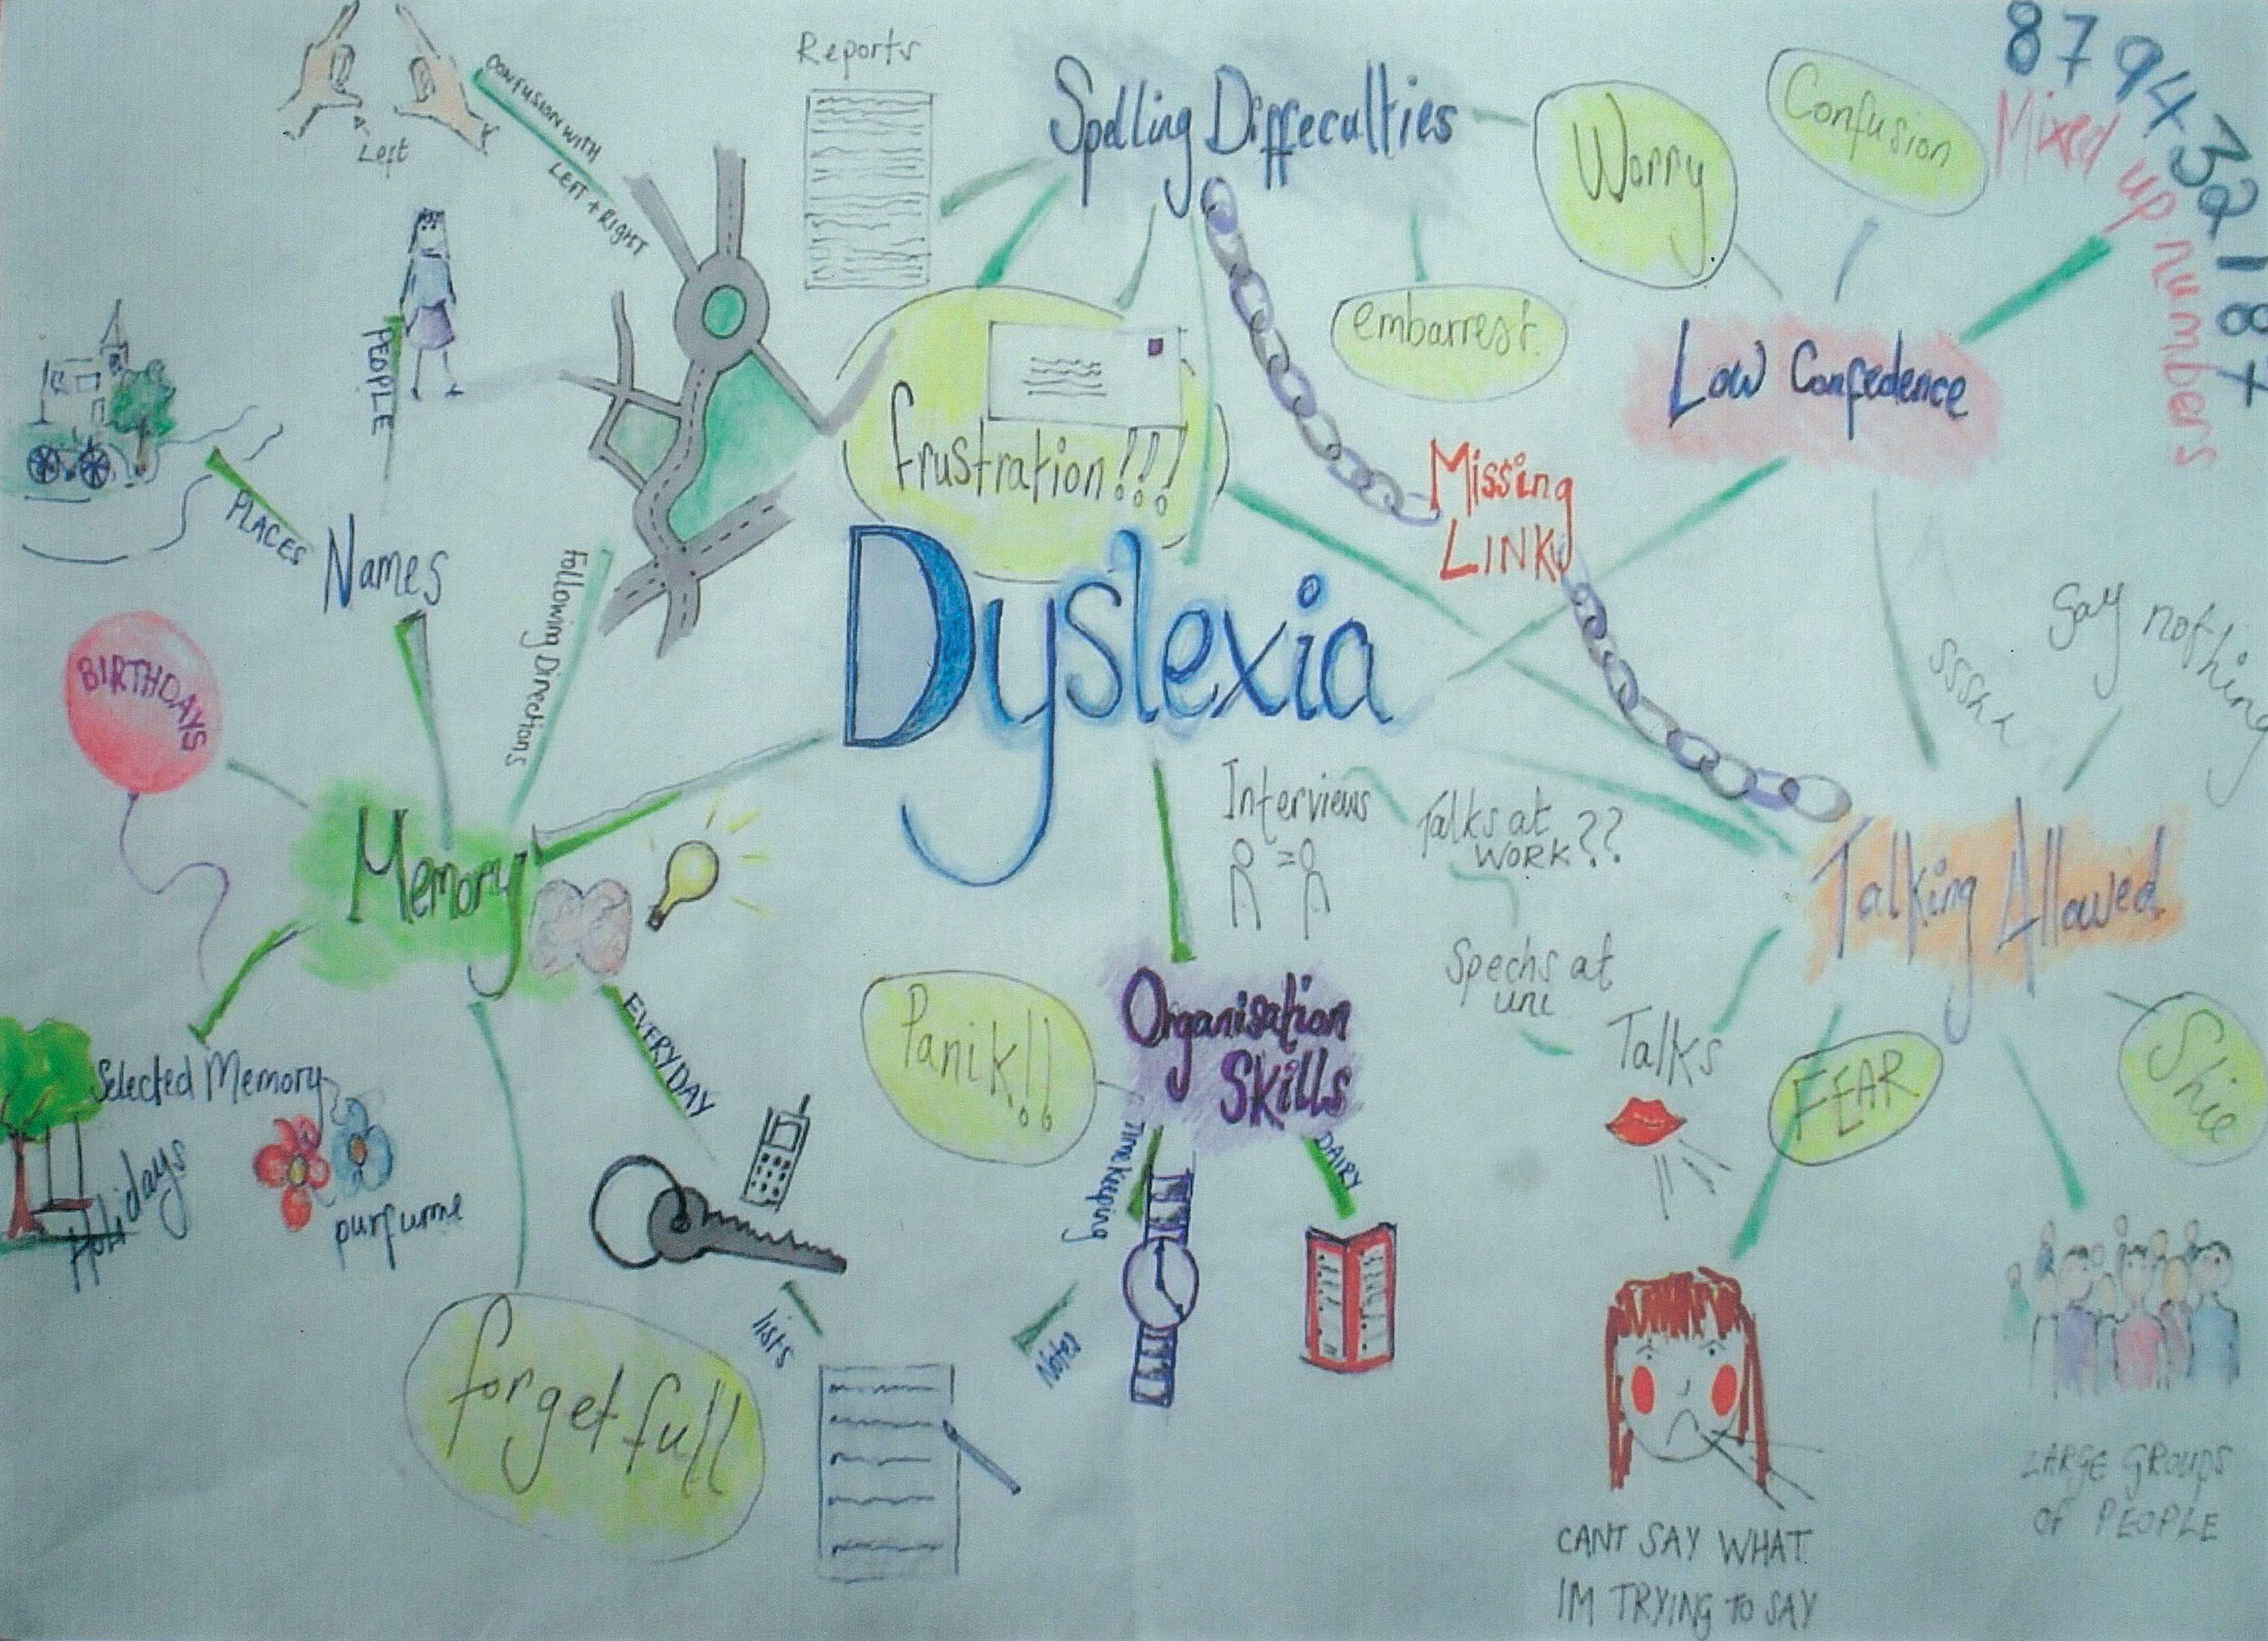 Reports
Spelling Diffeculties
Worry
Confusion
8794321877
Mixed up numbers
Left
CONFUSION WITH
LEFT + RIGHT
embarrest.
Low Confedence
PEOPLE
frustration!!!
Missing
LINK
PLACES
Names
Following Directions
Dyslexia
SSShh
Say nothing
BIRTHDAYS
Interviews
Talks at
WORK??
Memory
Talking Allowed
Spechs at
uni
Organisation
Skills
Panik!!
EVERYDAY
Talks
FEAR
Shie
Selected Memory
Holidays
purfume
Timekeeping
DAIRY
lists
Notes
forgetfull
LARGE GROUPS
OF PEOPLE
CANT SAY WHAT
IM TRYING TO SAY